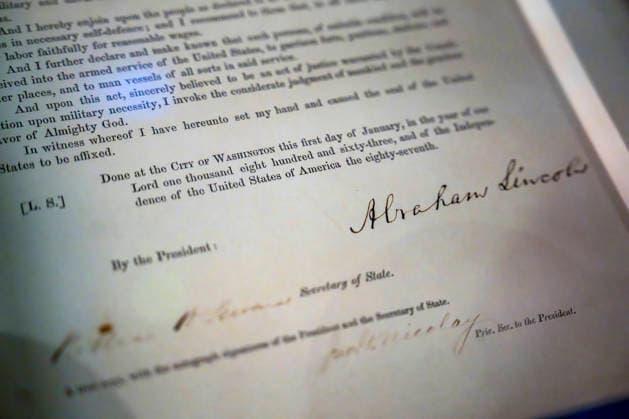 And I hereby enjoin upon the people so declared to be
in necessary self-defence; and I recommend to them that, in all
labor faithfully for reasonable wages.
And I further declare and make known that such persons, of suitable condition, will be
ceived into the armed service of the United States, to garrison forts, positions, stations, and
er places, and to man vessels of all sorts in said service.
And upon this act, sincerely believed to be an act of justice warranted by the Consti-
tion upon military necessity, I invoke the considerate judgment of mankind and the gracious
avor of Almighty God.
In witness whereof I have hereunto set my hand and caused the seal of the United
States to be affixed.
Done at the CITY OF WASHINGTON this first day of January, in the year of our
[L. S.] Lord one thousand eight hundred and sixty-three, and of the Indepen-
dence of the United States of America the eighty-seventh.
Abraham Lincoln
By the President:
Secretary of State.
with the autograph signatures of the President and the Secretary of State.
Jno G Nicolay
Priv. Sec. to the President.